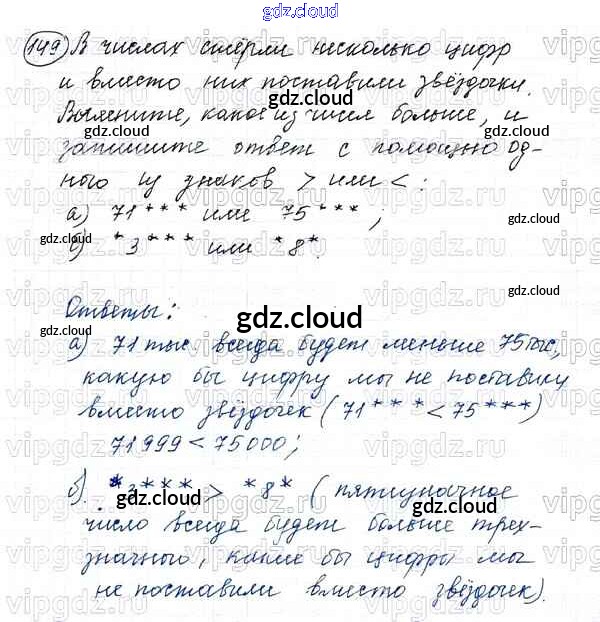 gdz.cloud
149 В числах стёрли несколько цифр
и вместо них поставили звёздочки.
Выясните, какое из чисел больше, и
запишите ответ с помощью од-
ного из знаков > или <:
а) 71*** или 75***;
б) *3*** или *8*.
Ответы:
gdz.cloud
а) 71 тыс всегда будет меньше 75 тыс,
какую бы цифру мы не поставили
вместо звёздочек (71*** < 75***)
71 999 < 75 000;
б) *3*** > *8* (пятизначное
число всегда будет больше трех-
значного, какие бы цифры мы
не поставили вместо звёздочек).